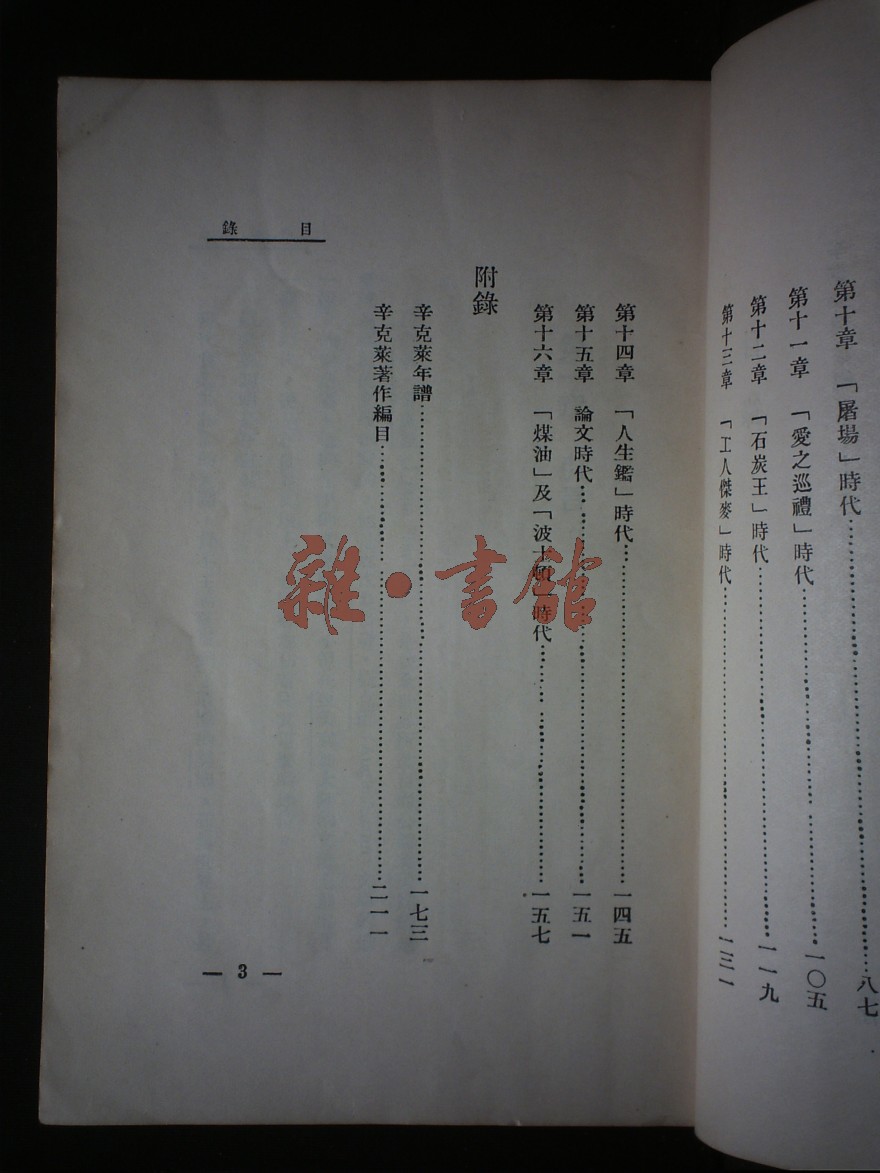 第十章　「屠場」時代……八七
第十一章　「愛之巡禮」時代……一〇五
第十二章　「石炭王」時代……一一九
第十三章　「工人傑麥」時代……一三一
目錄
第十四章　「人生鑑」時代……一四五
第十五章　論文時代……一五一
第十六章　「煤油」及「波士頓」時代……一五七
附錄
辛克萊年譜……一七三
辛克萊著作編目……二一一
— 3 —
雜·書館